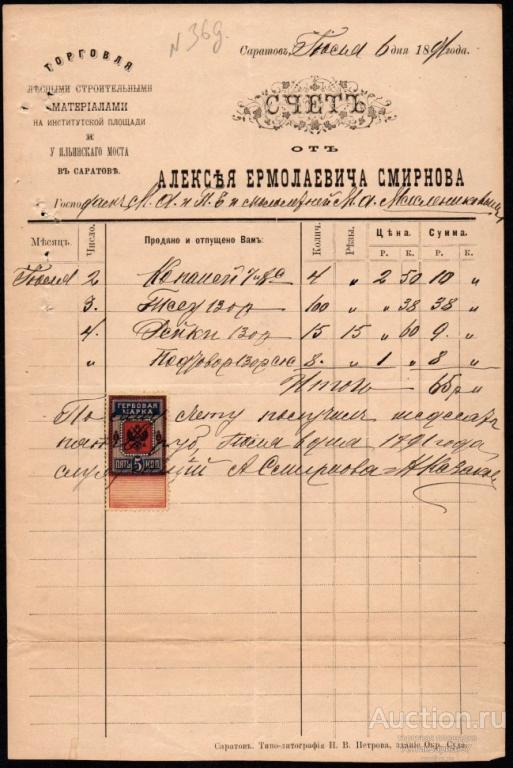 N 369.
ТОРГОВЛЯ
ЛѢСНЫМИ СТРОИТЕЛЬНЫМИ
МАТЕРІАЛАМИ
НА ИНСТИТУТСКОЙ ПЛОЩАДИ
И
У ИЛЬИНСКАГО МОСТА
ВЪ САРАТОВѢ.
Саратовъ, Іюля 6 дня 1891 года.
СЧЕТЪ
ОТЪ
АЛЕКСѢЯ ЕРМОЛАЕВИЧА СМИРНОВА
Госпо М. А.
Мѣсяцъ. Число. Продано и отпущено Вамъ: Колич. Рѣзы. Цѣна. Сумма.
Р. К. Р. К.
Іюля 2 4 „ 2 50 10 „
3. 100 „ „ 38 38 „
4. Рейки 15 15 „ 60 9. „
„ 8. „ 1 „ 8 „
Итого 65 р „
По счету получилъ шестдесятъ
пять руб, Іюля 6 дня 1891 года,
служащій А. Смирнова
ГЕРБОВАЯ
МАРКА
ПЯТЬ 5 КОП.
Саратовъ. Типо-литографія П. В. Петрова, зданіе Окр. Суда.
Auction.ru